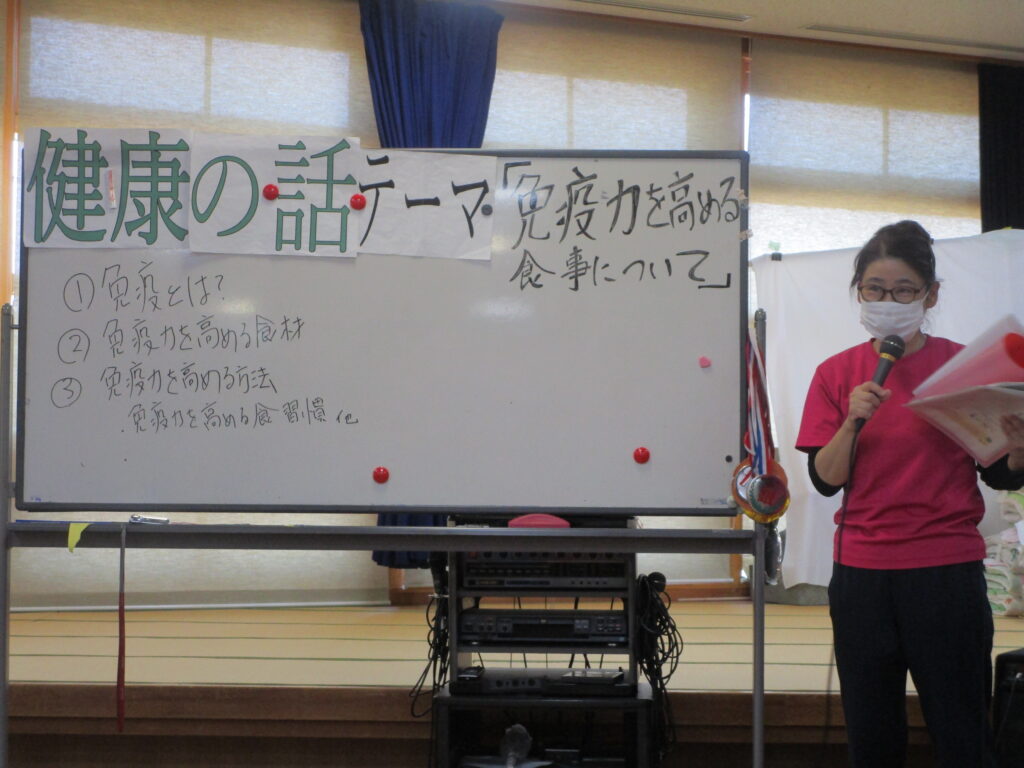 健康の話 テーマ「免疫力を高める
食事について」
① 免疫とは?
② 免疫力を高める食材
③ 免疫力を高める方法
・免疫力を高める食習慣 他